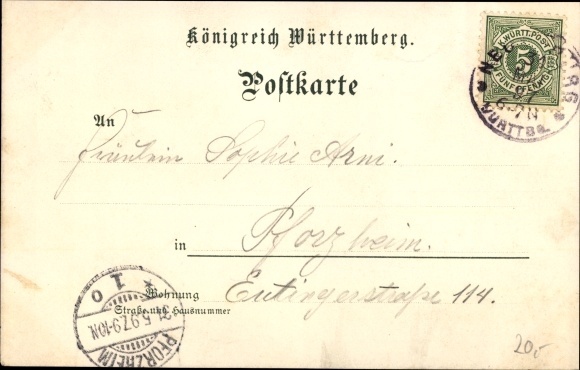 Königreich Württemberg.
Postkarte
K. WÜRTT. POST
5
FÜNF PFENNIG
6-7N
WÜRTTBG.
An
Fräulein Sophie Arni.
in Pforzheim.
Wohnung
Straße und Hausnummer
Eutingerstraße 114.
1 0
31.5.97.9-10N.
PFORZHEIM
20,-